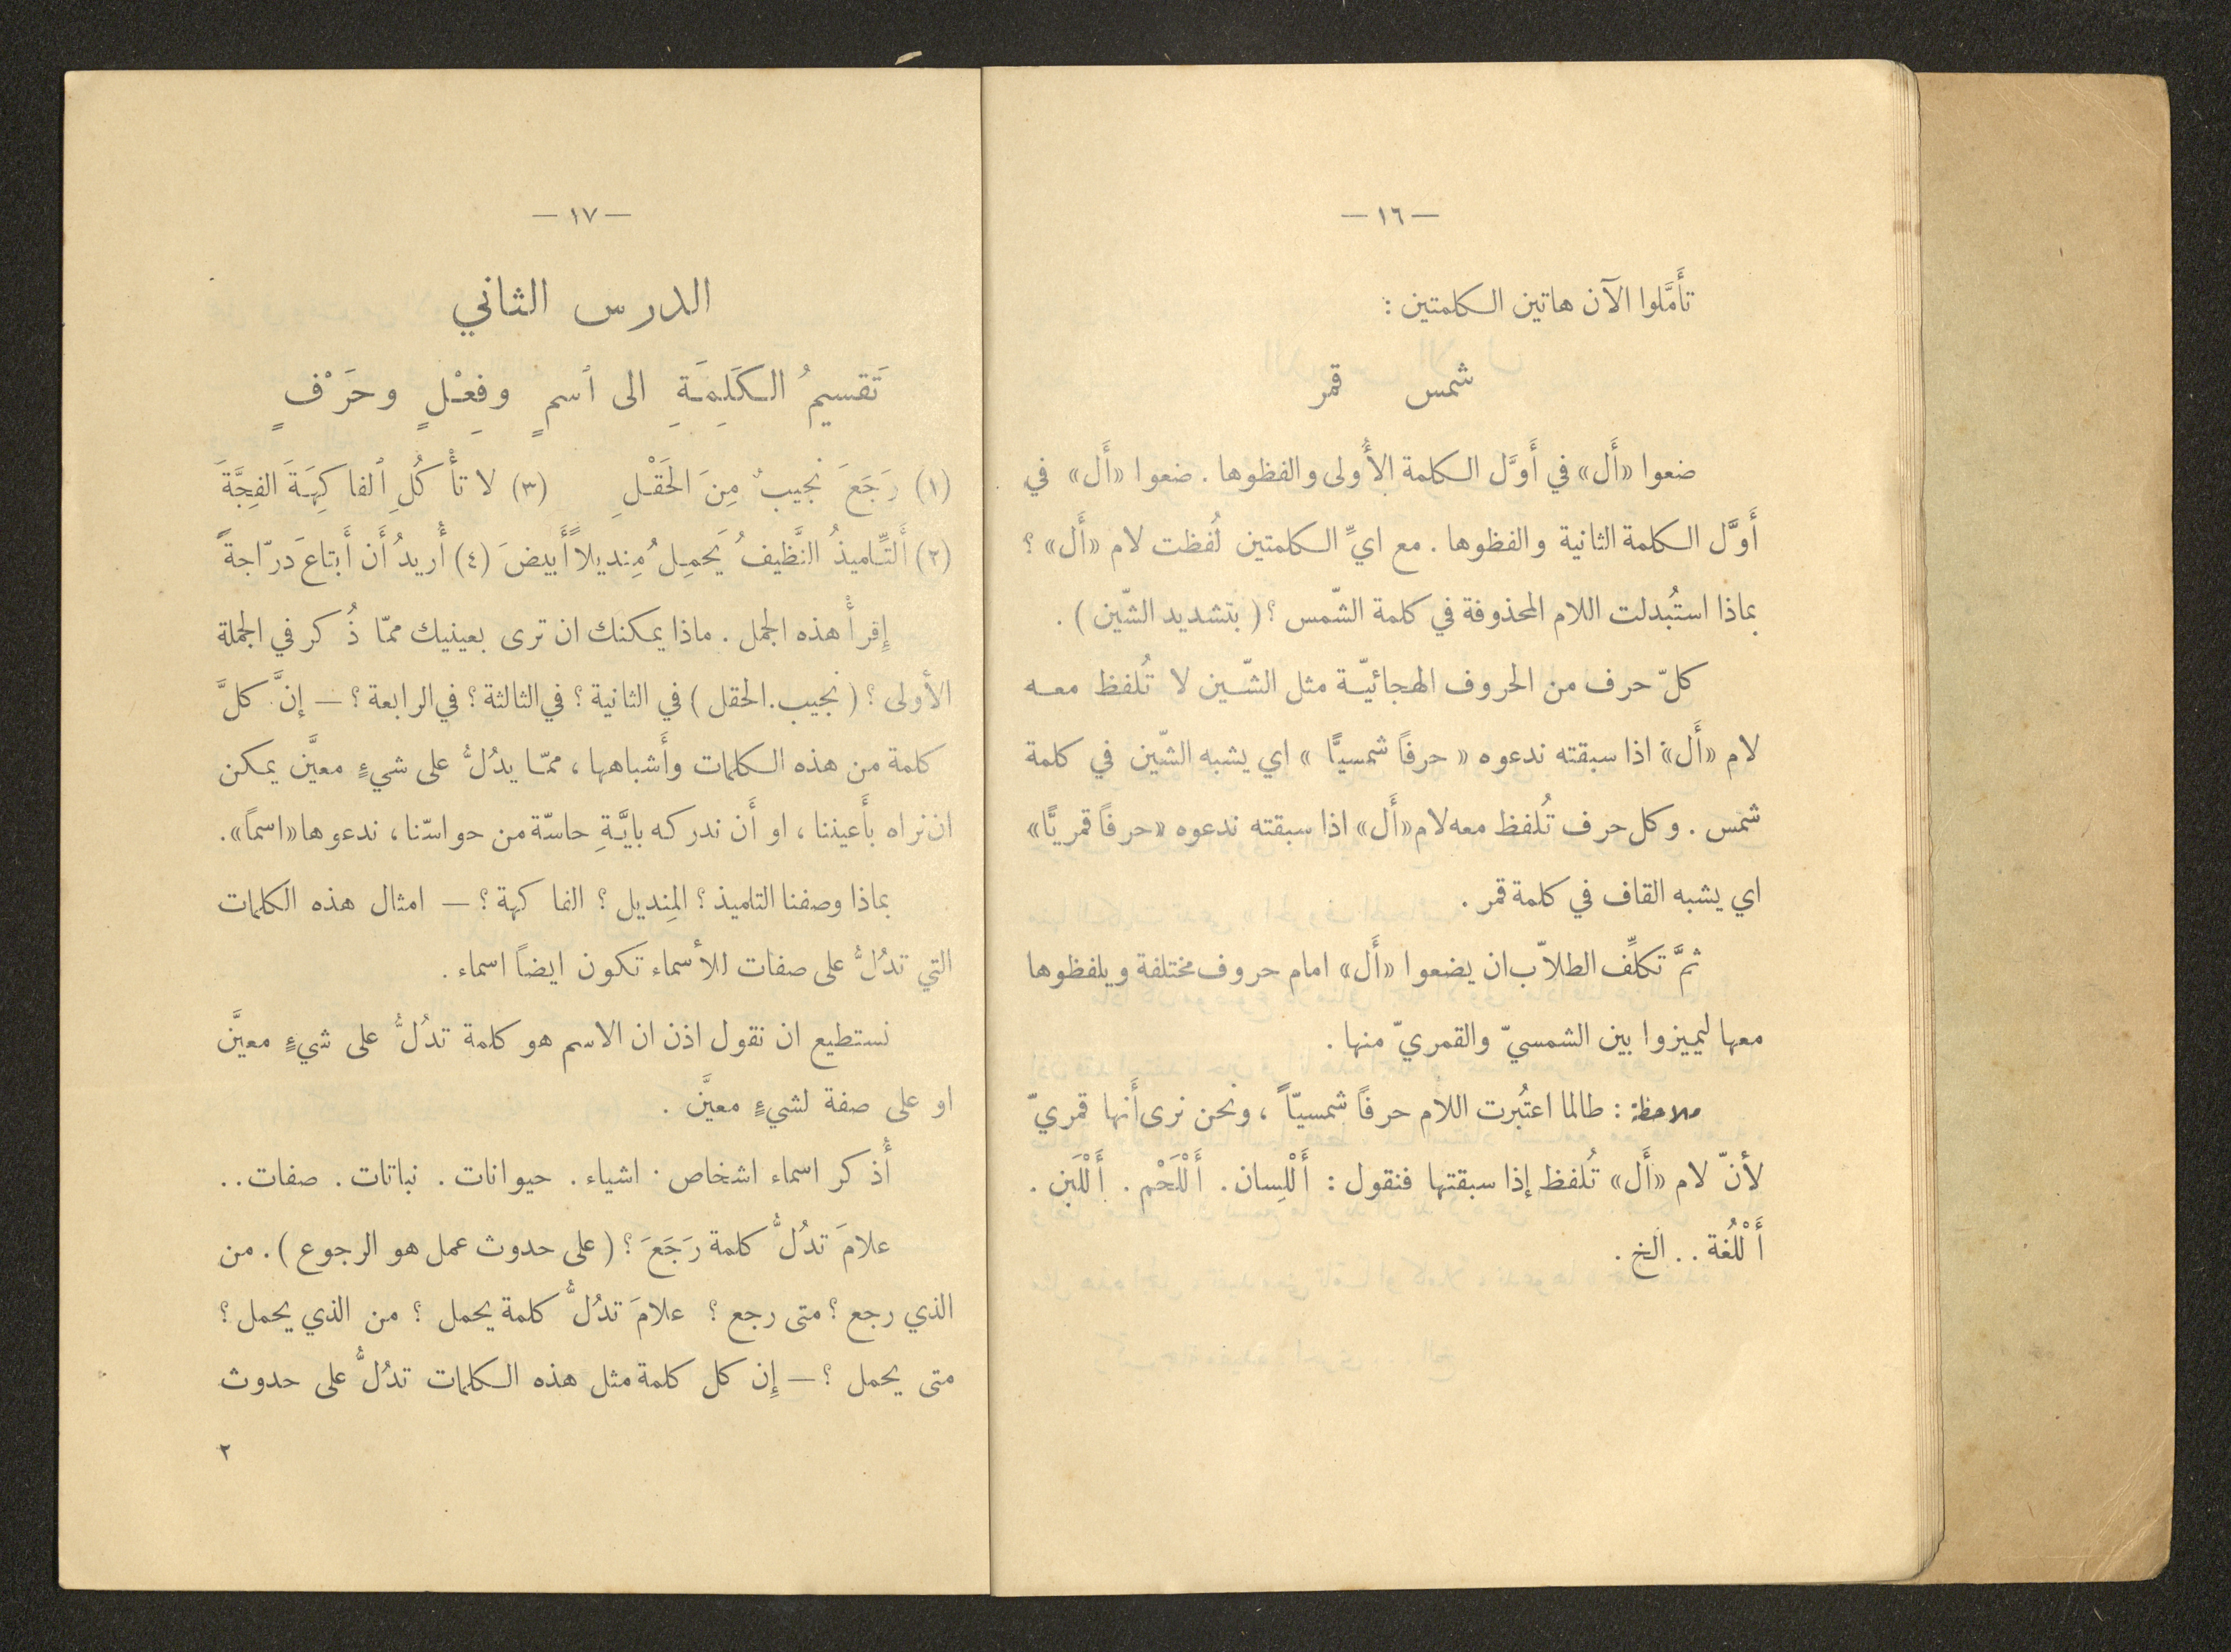 — ١٦ —
تأَمَّلوا الآن هاتين الكلمتين :
شمس قمر
ضعوا «أَل» في أَوَّل الكلمة الأُولى والفظوها . ضعوا «أَل» في
أَوَّل الكلمة الثانية والفظوها . مع ايِّ الكلمتين لُفظت لام «أَل» ؟
بماذا استُبدلت اللام المحذوفة في كلمة الشّمس ؟ ( بتشديد الشّين ) .
كلّ حرف من الحروف الهجائيّة مثل الشّين لا تُلفظ معه
لام «أَل» اذا سبقته ندعوه « حرفاً شمسيًّا » اي يشبه الشّين في كلمة
شمس . وكل حرف تُلفظ معه لام «أَل» اذا سبقته ندعوه «حرفاً قمريًّا»
اي يشبه القاف في كلمة قمر .
ثمَّ تكلِّف الطلاّب ان يضعوا «أَل» امام حروف مختلفة ويلفظوها
معها ليميزوا بين الشمسيّ والقمريّ منها .
ملاحظة : طالما اعتُبرت اللام حرفاً شمسيّاً ، ونحن نرى أَنها قمريّ
لأنّ لام «أَل» تُلفظ إذا سبقتها فنقول : أَلْلِسان . أَلْلَحْم . أَلْلَبَن .
أَلْلُغة . . الخ .
— ١٧ —
الدرس الثاني
تَقسيمُ الكَلِمَةِ الى ٱسمٍ وفِعْلٍ وحَرْفٍ
(١) رَجَعَ نجيبٌ مِنَ الحَقْلِ (٣) لا تأْكُلِ ٱلفاكِهَةَ الفِجَّةَ
(٢) أَلتِّلميذُ النَّظيفُ يَحمِلُ مِنديلاً أَبيضَ (٤) أُريدُ أَن أَبتاعَ درّاجةً
إِقرأْ هذه الجمل . ماذا يمكنك ان ترى بعينيك ممّا ذُكر في الجملة
الأولى ؟ ( نجيب . الحقل ) في الثانية ؟ في الثالثة ؟ في الرابعة ؟ — إنَّ كلَّ
كلمة من هذه الكلمات وأَشباهها ، ممّا يدُلُّ على شيءٍ معيَّن يمكن
ان نراه بأَعيننا ، او أَن ندركه بايَّةِ حاسّة من حواسّنا ، ندعوها «اسماً» .
بماذا وصفنا التلميذ ؟ المِنديل ؟ الفاكهة ؟ — امثال هذه الكلمات
التي تدُلُّ على صفات للأسماء تكون ايضاً اسماء .
نستطيع ان نقول اذن ان الاسم هو كلمة تدُلُّ على شيءٍ معيَّن
او على صفة لشيءٍ معيَّن .
أُذكر اسماء اشخاص . اشياء . حيوانات . نباتات . صفات . .
علامَ تدُلُّ كلمة رَجَعَ ؟ ( على حدوث عمل هو الرجوع ) . من
الذي رجع ؟ متى رجع ؟ علامَ تدُلُّ كلمة يحمل ؟ من الذي يحمل ؟
متى يحمل ؟ — إِن كل كلمة مثل هذه الكلمات تدُلُّ على حدوث
٢